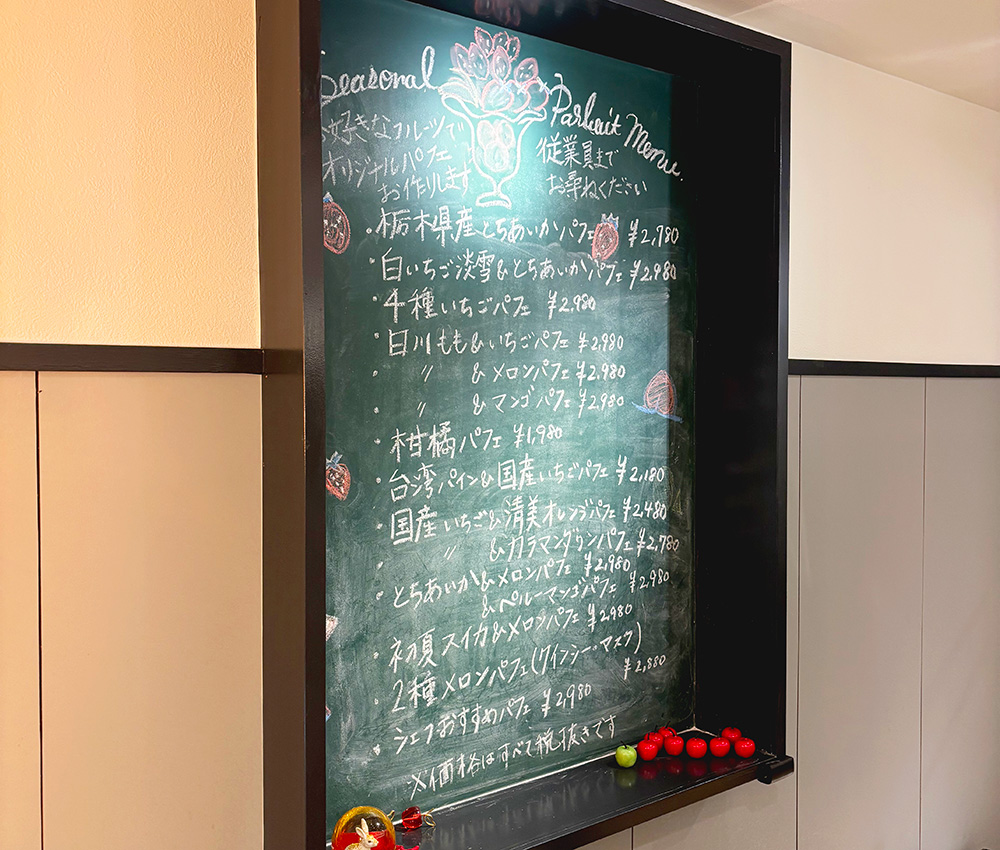 Seasonal Parfait Menu.
お好きなフルーツで
オリジナルパフェ
お作りします
従業員まで
お尋ねください
・栃木県産とちあいかパフェ ¥2,780
・白いちご淡雪&とちあいかパフェ ¥2,980
・4種いちごパフェ ¥2,980
・白川もも&いちごパフェ ¥2,980
・ 〃 &メロンパフェ ¥2,980
・ 〃 &マンゴパフェ ¥2,980
・柑橘パフェ ¥1,980
・台湾パイン&国産いちごパフェ ¥2,180
・国産いちご&清美オレンジパフェ ¥2,480
・ 〃 &カラマンダリンパフェ ¥2,780
・とちあいか&メロンパフェ ¥2,980
&ペルーマンゴパフェ ¥2,980
・初夏スイカ&メロンパフェ ¥2,980
・2種メロンパフェ(クインシー・マスク)
¥2,880
・シェフおすすめパフェ ¥2,980
※価格はすべて税抜きです